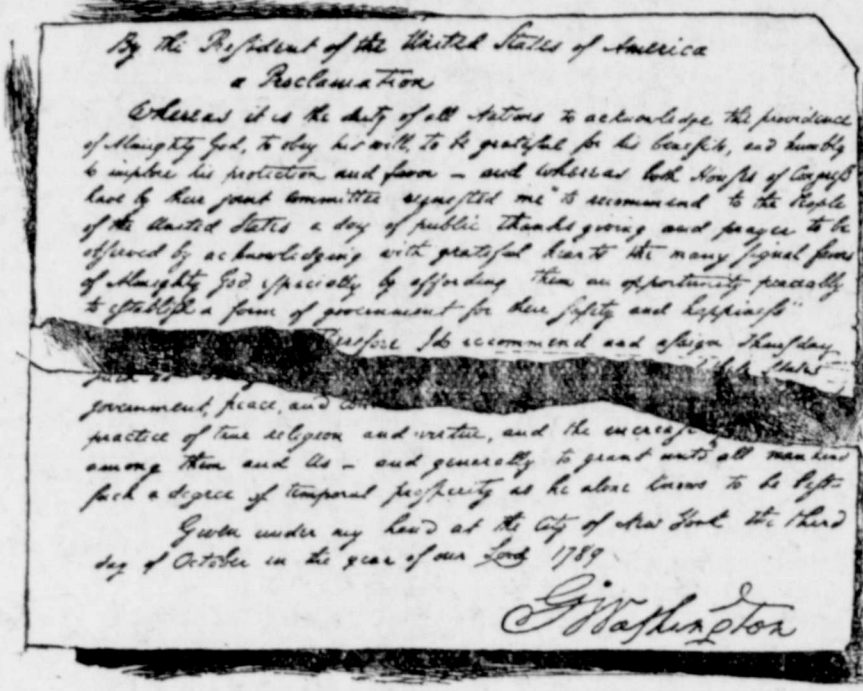 By the President of the United States of America
a Proclamation
Whereas it is the duty of all Nations to acknowledge the providence
of Almighty God, to obey his will, to be grateful for his benefits, and humbly
to implore his protection and favor – and whereas both Houses of Congress
have by their joint Committee requested me "to recommend to the People
of the United States a day of public thanksgiving and prayer to be
observed by acknowledging with grateful hearts the many signal favors
of Almighty God especially by affording them an opportunity peaceably
to establish a form of government for their safety and happiness"
Therefore I do recommend and assign Thursday
States
such as
government, peace, and con
practice of true religion and virtue, and the increase
among them and us – and generally to grant unto all mankind
such a degree of temporal prosperity as he alone knows to be best.
Given under my hand at the City of New York the third
day of October in the year of our Lord 1789
G. Washington